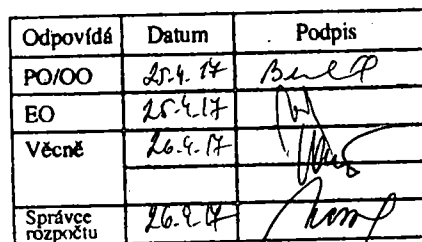 Odpovídá Datum Podpis
PO/OO 25.4.17
EO 25.4.17
Věcně 26.4.17
Správce rozpočtu 26.4.17